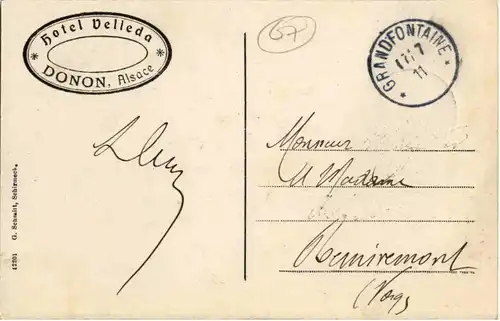 Hotel Velleda
DONON, Alsace
67
* GRANDFONTAINE *
17 7
11
Monsieur
et Madame
Remiremont
(Vosges
12201 G. Schmidt, Schirmeck.